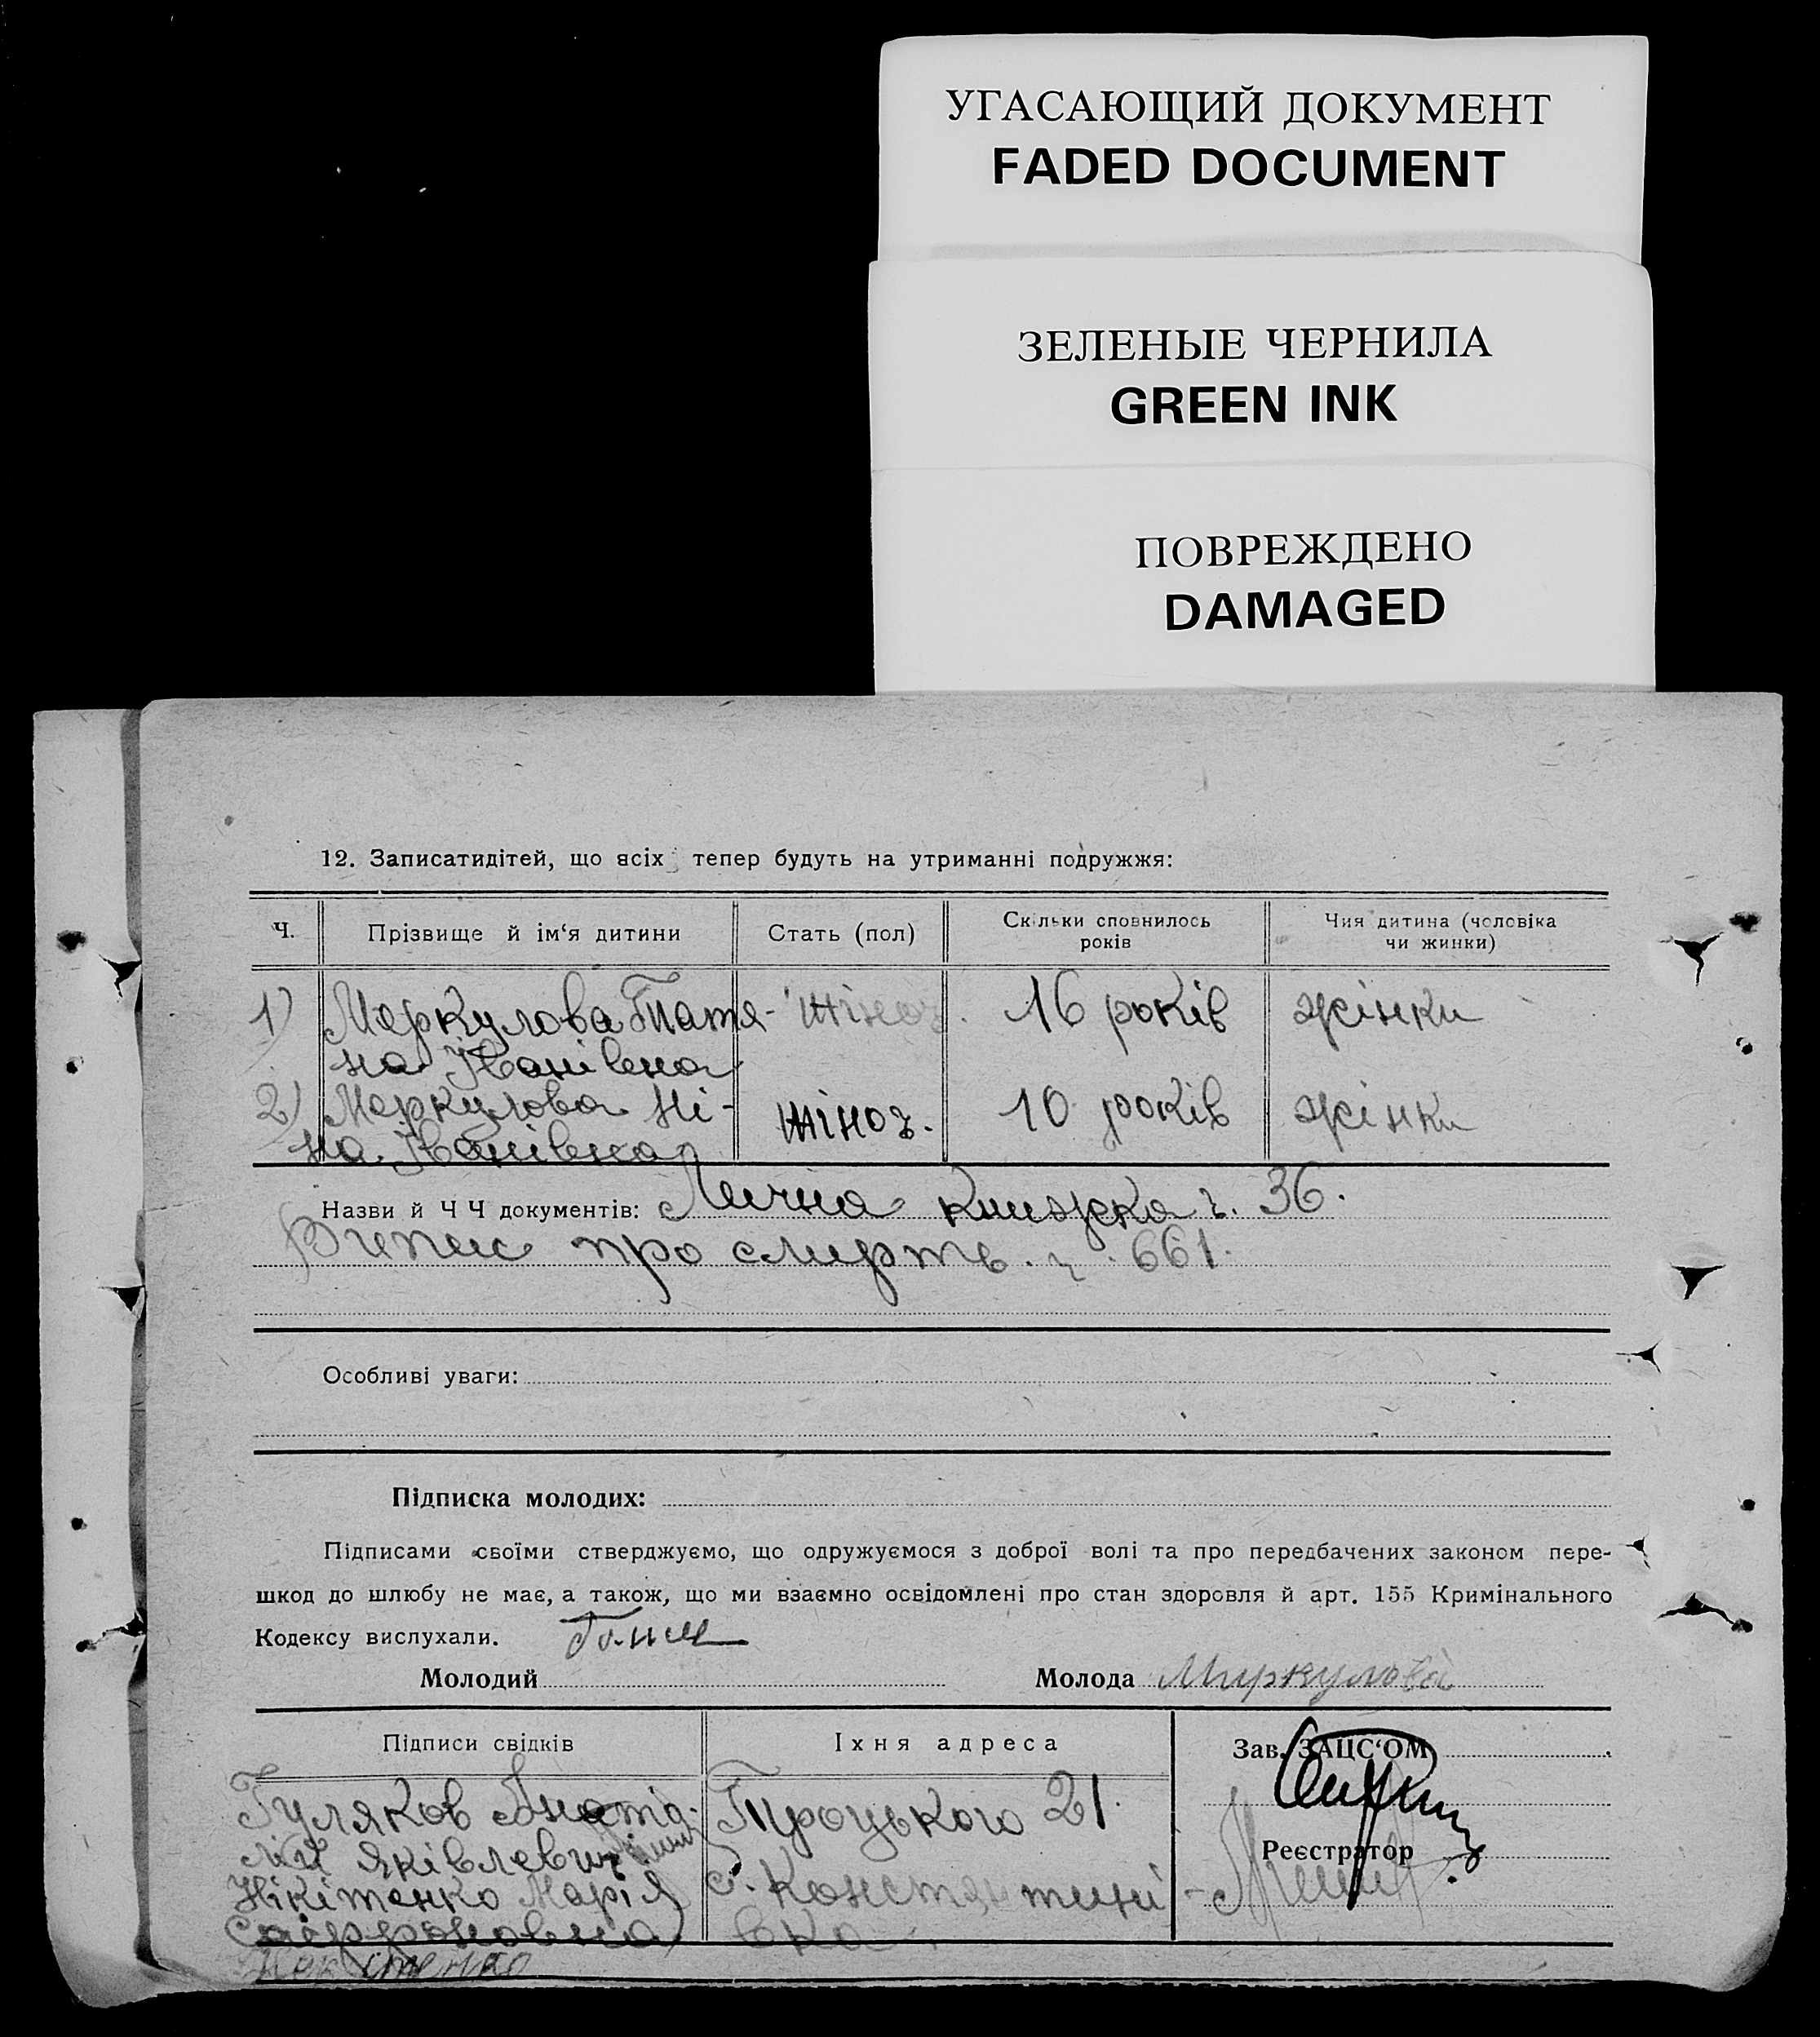 УГАСАЮЩИЙ ДОКУМЕНТ
FADED DOCUMENT
ЗЕЛЕНЫЕ ЧЕРНИЛА
GREEN INK
ПОВРЕЖДЕНО
DAMAGED
12. Записатидітей, що всіх тепер будуть на утриманні подружжя:
Ч. Прізвище й ім‘я дитини Стать (пол) Скільки сповнилось років Чия дитина (чоловіка чи жинки)
1) Меркулова Татя- жіноч. 16 років жінки
на Іванівна
2) Меркулова Ні- жіноч. 10 років жінки
на Іванівна
Назви й Ч Ч документів: Лична книжка ч. 36.
Випис про смерть. ч. 661.
Особливі уваги:
Підписка молодих:
Підписами своїми стверджуємо, що одружуємося з доброї волі та про передбачених законом пере-
шкод до шлюбу не має, а також, що ми взаємно освідомлені про стан здоровля й арт. 155 Кримінального
Кодексу вислухали.
Молодий Молода Меркулова
Підписи свідків Їхня адреса Зав. ЗАЦС‘ОМ
Гуляков Анато- Троцького 21.
лій Яківлевич Реєстратор
Нікітенко Марія С. Константині-
Сафроновна вка